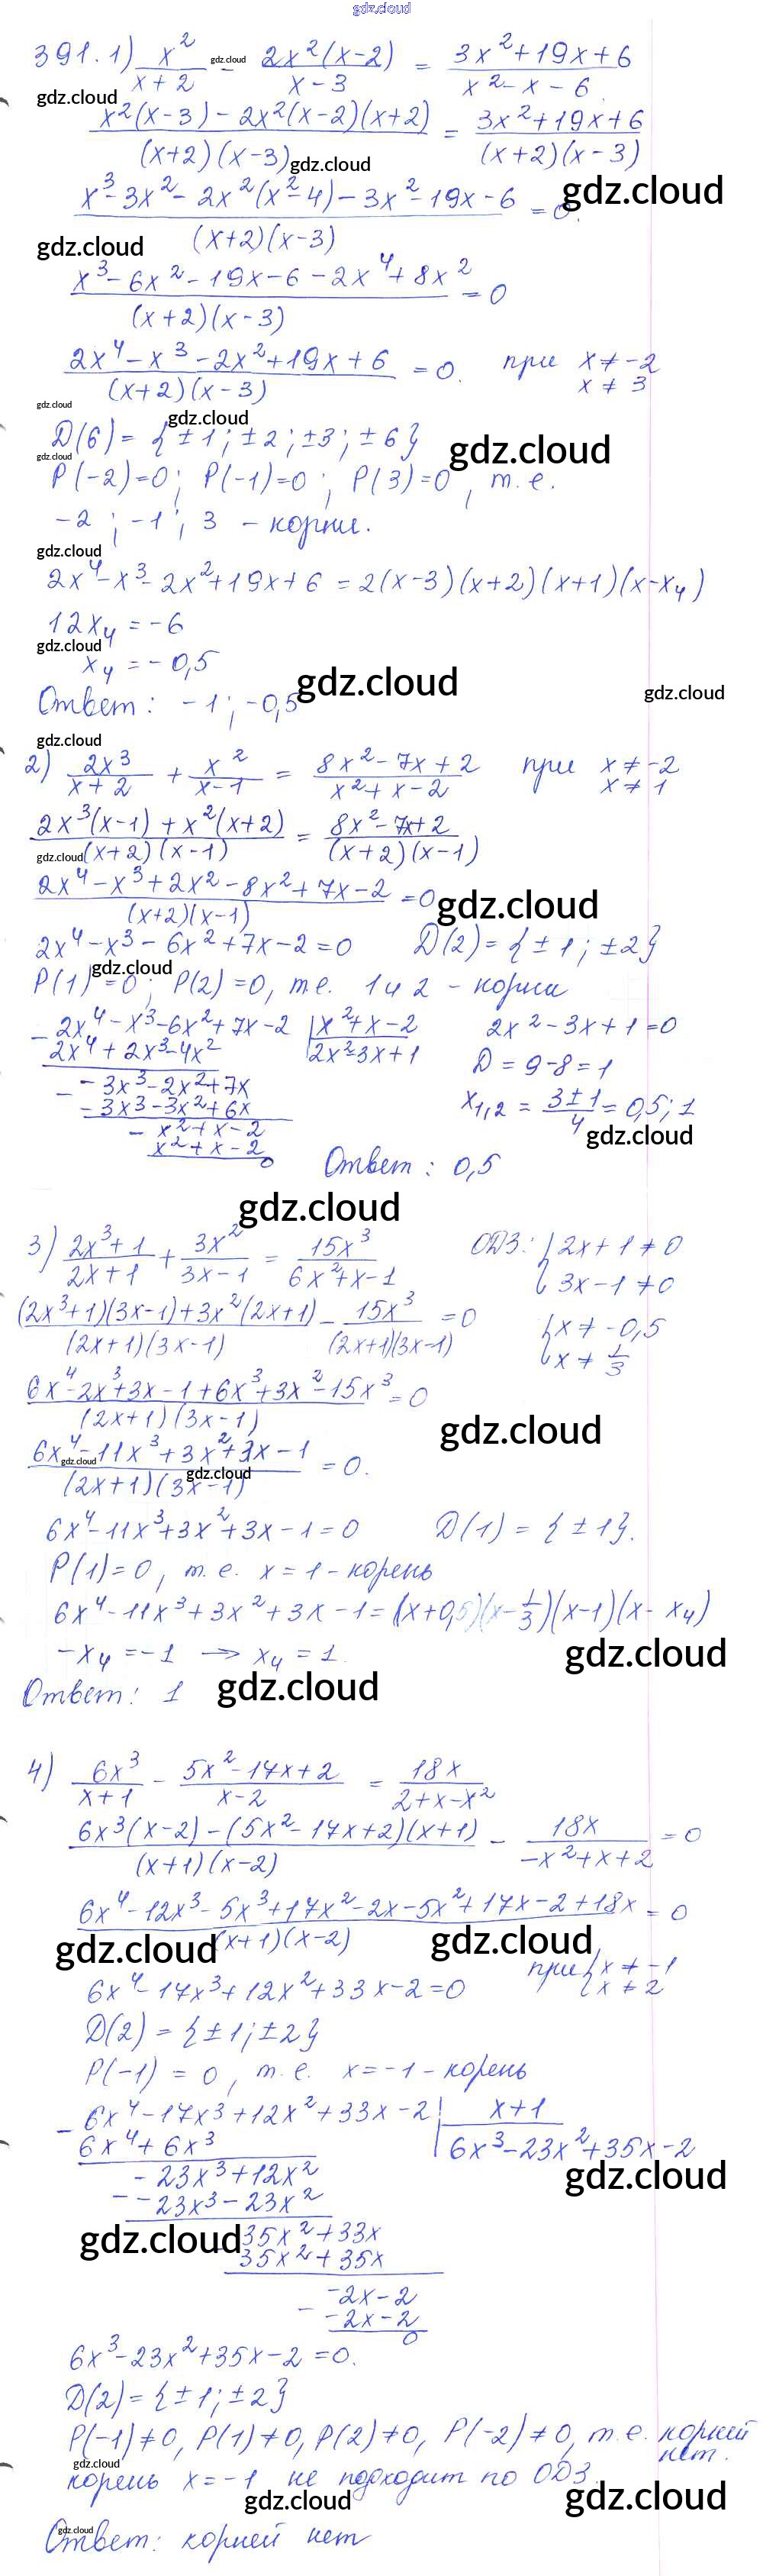 gdz.cloud
391. 1) x²/(x+2) - 2x²(x-2)/(x-3) = (3x²+19x+6)/(x²-x-6)
gdz.cloud
gdz.cloud
(x²(x-3) - 2x²(x-2)(x+2))/((x+2)(x-3)) = (3x²+19x+6)/((x+2)(x-3))
gdz.cloud
(x³-3x²-2x²(x²-4)-3x²-19x-6)/((x+2)(x-3)) = 0.
gdz.cloud
gdz.cloud
(x³-6x²-19x-6-2x⁴+8x²)/((x+2)(x-3)) = 0
(2x⁴-x³-2x²+19x+6)/((x+2)(x-3)) = 0. при x≠-2 x≠3
gdz.cloud
gdz.cloud
D(6) = {±1; ±2; ±3; ±6}
gdz.cloud
gdz.cloud
P(-2)=0; P(-1)=0; P(3)=0, т.е.
-2; -1; 3 - корни.
gdz.cloud
2x⁴-x³-2x²+19x+6 = 2(x-3)(x+2)(x+1)(x-x₄)
12x₄ = -6
gdz.cloud
x₄ = -0,5
gdz.cloud
gdz.cloud
Ответ: -1; -0,5
gdz.cloud
2) 2x³/(x+2) + x²/(x-1) = (8x²-7x+2)/(x²+x-2) при x≠-2 x≠1
(2x³(x-1)+x²(x+2))/((x+2)(x-1)) = (8x²-7x+2)/((x+2)(x-1))
gdz.cloud
(2x⁴-x³+2x²-8x²+7x-2)/((x+2)(x-1)) = 0
gdz.cloud
2x⁴-x³-6x²+7x-2=0 D(2)={±1; ±2}
gdz.cloud
P(1)=0; P(2)=0, т.е. 1 и 2 - корни
2x⁴-x³-6x²+7x-2 | x²+x-2 2x²-3x+1=0
2x⁴+2x³-4x² 2x²-3x+1 D=9-8=1
-3x³-2x²+7x
-3x³-3x²+6x x₁,₂ = (3±1)/4 = 0,5; 1
x²+x-2
gdz.cloud
x²+x-2
0
Ответ: 0,5
gdz.cloud
3) (2x³+1)/(2x+1) + 3x²/(3x-1) = 15x³/(6x²+x-1) ОДЗ: {2x+1≠0 3x-1≠0
((2x³+1)(3x-1)+3x²(2x+1))/((2x+1)(3x-1)) - 15x³/((2x+1)(3x-1)) = 0 {x≠-0,5 x≠1/3
(6x⁴-2x³+3x-1+6x³+3x²-15x³)/((2x+1)(3x-1)) = 0
gdz.cloud
(6x⁴-11x³+3x²+3x-1)/((2x+1)(3x-1)) = 0.
gdz.cloud
gdz.cloud
6x⁴-11x³+3x²+3x-1=0 D(1)={±1}.
P(1)=0, т.е. x=1 - корень
6x⁴-11x³+3x²+3x-1=(x+0,5)(x-1/3)(x-1)(x-x₄)
-x₄=-1 → x₄=1.
gdz.cloud
Ответ: 1
gdz.cloud
4) 6x³/(x+1) - (5x²-17x+2)/(x-2) = 18x/(2+x-x²)
(6x³(x-2)-(5x²-17x+2)(x+1))/((x+1)(x-2)) - 18x/(-x²+x+2) = 0
(6x⁴-12x³-5x³+17x²-2x-5x²+17x-2+18x)/((x+1)(x-2)) = 0
gdz.cloud
gdz.cloud
при {x≠-1 x≠2
6x⁴-17x³+12x²+33x-2=0
D(2)={±1; ±2}
P(-1)=0, т.е. x=-1 - корень
6x⁴-17x³+12x²+33x-2 | x+1
6x⁴+6x³ 6x³-23x²+35x-2
gdz.cloud
-23x³+12x²
-23x³-23x²
gdz.cloud
35x²+33x
35x²+35x
-2x-2
-2x-2
0
6x³-23x²+35x-2=0.
D(2)={±1; ±2}
P(-1)≠0, P(1)≠0, P(2)≠0, P(-2)≠0, т.е. корней нет.
gdz.cloud
корень x=-1 не подходит по ОДЗ.
gdz.cloud
gdz.cloud
gdz.cloud
Ответ: корней нет